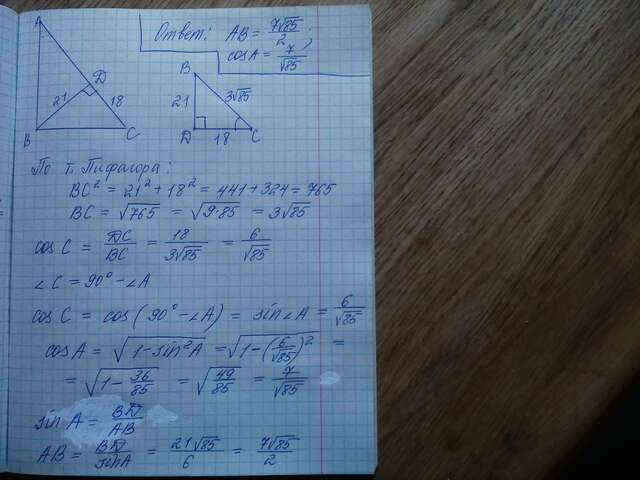 Ответ: AB = 7√85/2 ;
cosA = 7/√85
A
D
21
18
B
C
B
21
3√85
D
18
C
По т. Пифагора:
BC² = 21² + 18² = 441 + 324 = 765
BC = √765 = √9·85 = 3√85
cos C = DC/BC = 18/3√85 = 6/√85
∠C = 90° - ∠A
cos C = cos(90° - ∠A) = sin∠A = 6/√85
cosA = √1-sin²A = √1-(6/√85)² =
= √1-36/85 = √49/85 = 7/√85
sin A = BD/AB
AB = BD/sinA = 21√85/6 = 7√85/2